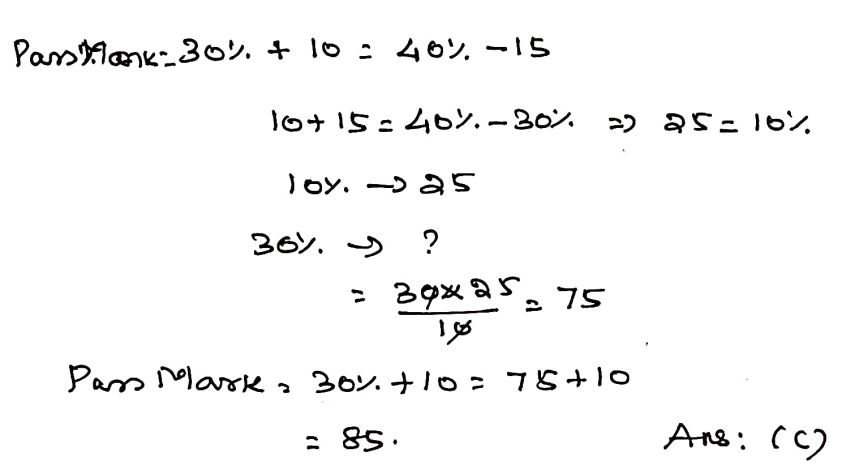 Pass Mark = 30% + 10 = 40% - 15
10 + 15 = 40% - 30% => 25 = 10%
10% → 25
30% → ?
= 30 x 25 / 10 = 75
Pass Mark = 30% + 10 = 75 + 10
= 85.
Ans: (C)